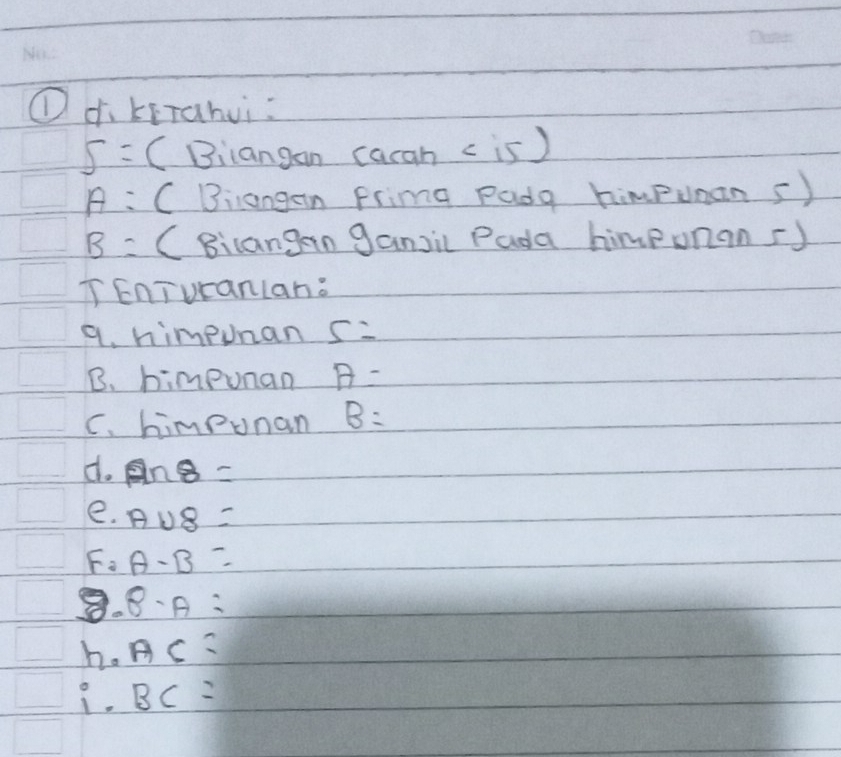 No.
Date:
① diketahui:
S = ( Bilangan cacah < 15 )
A = ( Bilangan Prima Pada himpunan S )
B = ( Bilangan ganjil Pada himpunan S )
TEnTukanlah:
a. himpunan S =
B. himpunan A =
C. himpunan B =
d. A∩B =
e. A∪B =
F. A-B =
g. B-A =
h. AC =
i. BC =